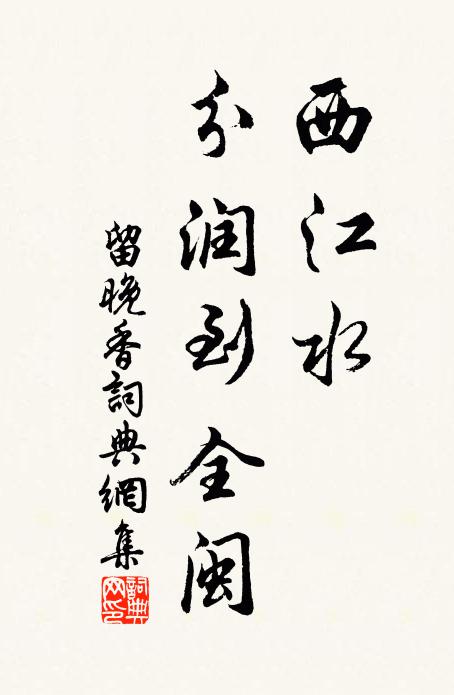 西江水
分润到全闽
留晚香詞典網集
詞典网印